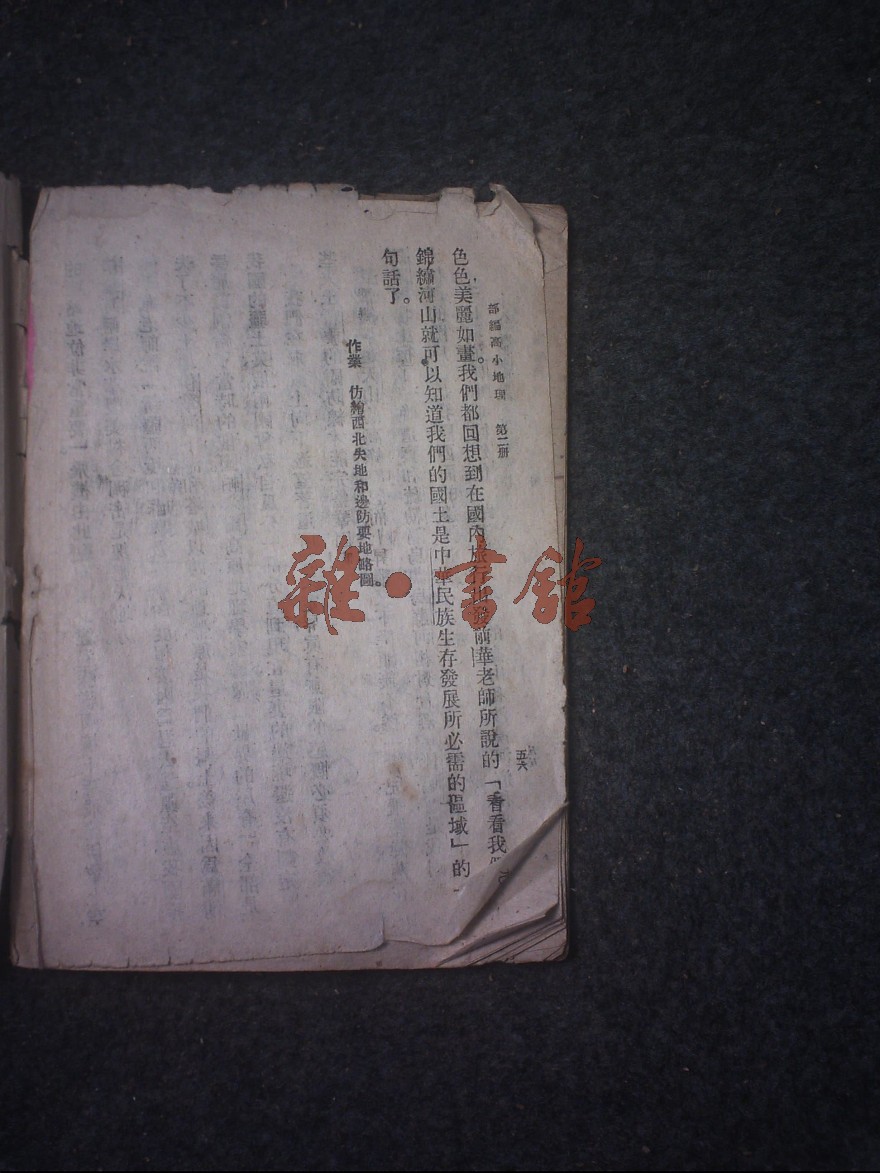 部編高小地理 第二册
五六
色色美麗如畫。我們都回想到在國內旅行出發前華老師所說的「看看我們
錦繡河山就可以知道我們的國土是中華民族生存發展所必需的區域」的一
句話了。
作業 仿繪西北失地和邊防要地略圖。
雜·書館